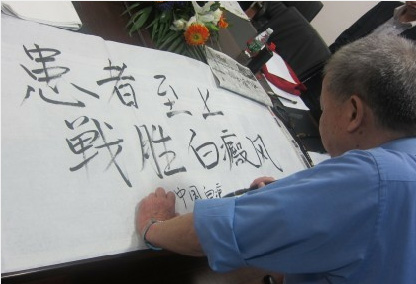 患者至上
戰胜白癜风
中国白